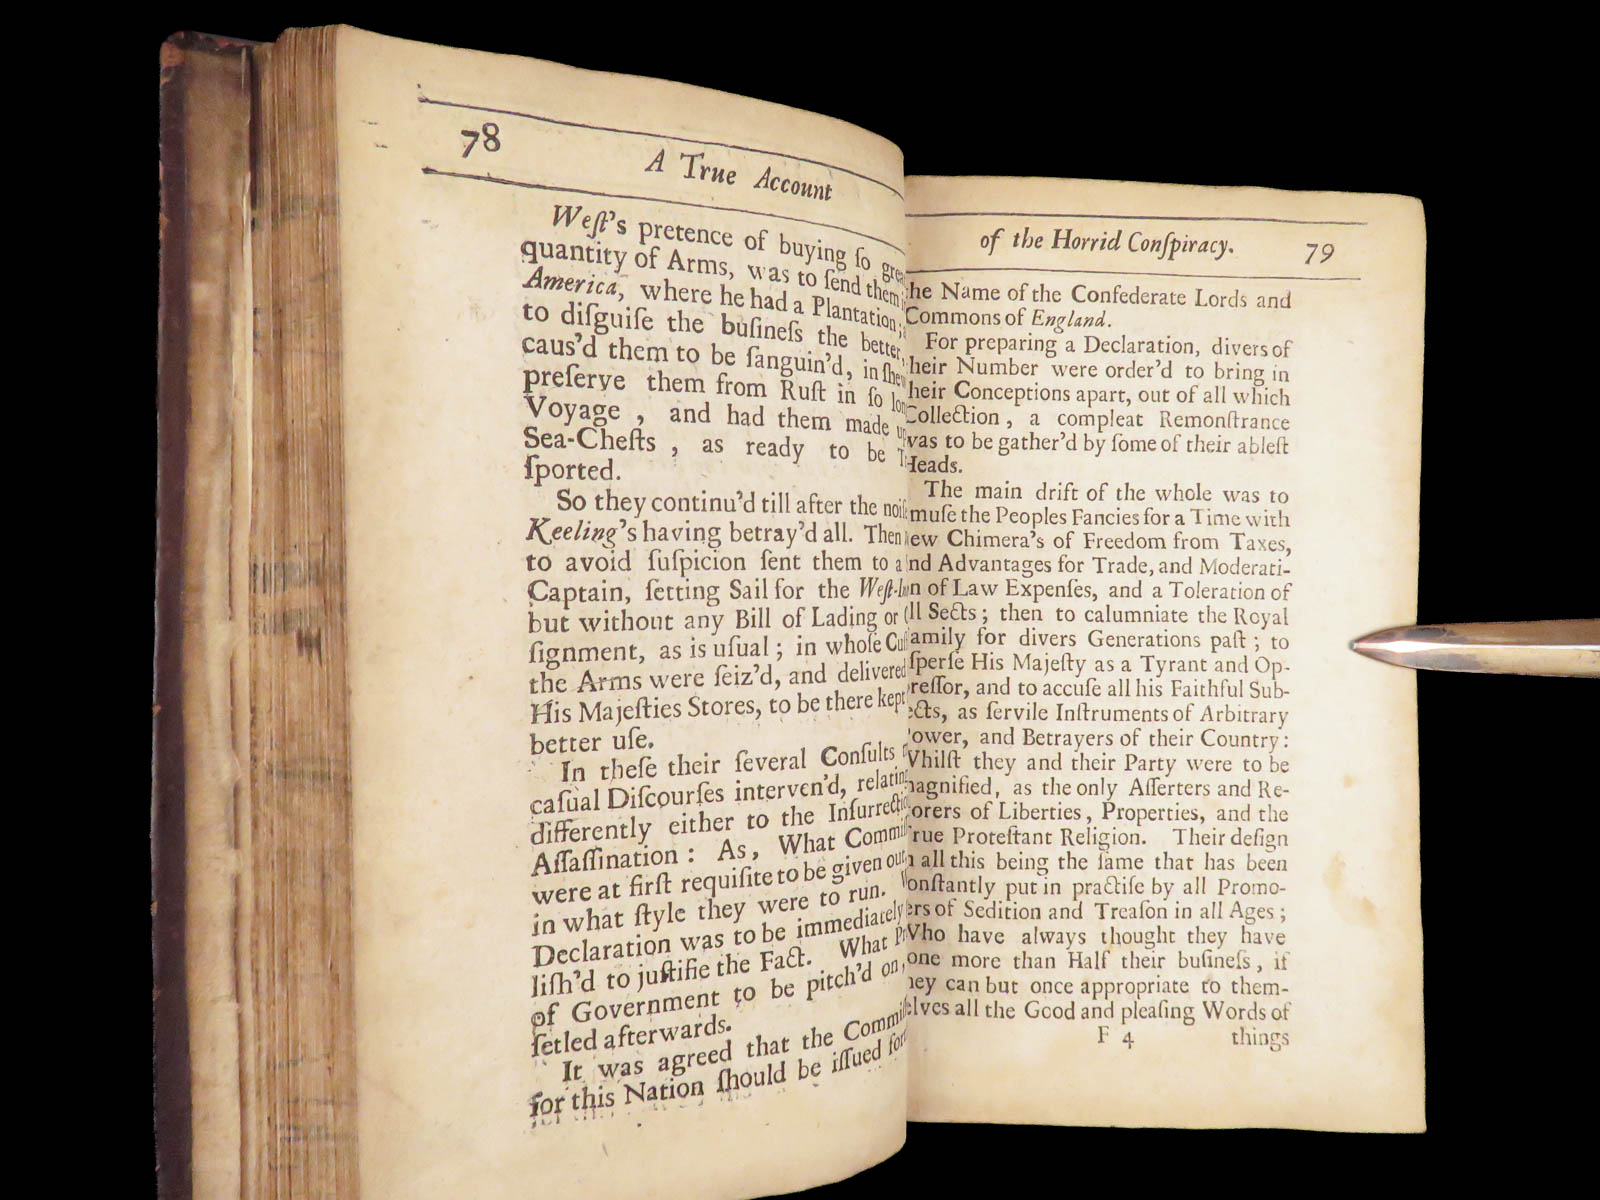 78
A True Account
Weſt's pretence of buying ſo
quantity of Arms, was to ſend them
America, where he had a Plantation;
to diſguiſe the buſineſs the better,
caus'd them to be ſanguin'd, in
preſerve them from Ruſt in ſo
Voyage , and had them made
Sea-Cheſts , as ready to be
ſported.
So they continu'd till after the
Keeling's having betray'd all. Then
to avoid ſuſpicion ſent them to a
Captain, ſetting Sail for the
but without any Bill of Lading or
ſignment, as is uſual; in whoſe
the Arms were ſeiz'd, and delivered
His Majeſties Stores, to be there kept
better uſe.
In theſe their ſeveral Conſults
caſual Diſcourſes interven'd,
differently either to the
Aſſaſſination: As, What
were at firſt requiſite to be given out,
in what ſtyle they were to run.
Declaration was to be immediately
liſh'd to juſtifie the Fact. What
of Government to be pitch'd on,
ſetled afterwards.
It was agreed that the
for this Nation ſhould be iſſued
of the Horrid Conſpiracy. 79
the Name of the Confederate Lords and
Commons of England.
For preparing a Declaration, divers of
their Number were order'd to bring in
their Conceptions apart, out of all which
Collection , a compleat Remonſtrance
was to be gather'd by ſome of their ableſt
Heads.
The main drift of the whole was to
muſe the Peoples Fancies for a Time with
new Chimera's of Freedom from Taxes,
and Advantages for Trade, and Moderati-
on of Law Expenſes, and a Toleration of
all Sects; then to calumniate the Royal
Family for divers Generations paſt; to
ſperſe His Majeſty as a Tyrant and Op-
preſſor, and to accuſe all his Faithful Sub-
jects, as ſervile Inſtruments of Arbitrary
Power, and Betrayers of their Country:
Whilſt they and their Party were to be
magnified, as the only Aſſerters and Re-
ſtorers of Liberties, Properties, and the
True Proteſtant Religion. Their deſign
in all this being the ſame that has been
conſtantly put in practiſe by all Promo-
ters of Sedition and Treaſon in all Ages;
Who have always thought they have
done more than Half their buſineſs, if
they can but once appropriate to them-
ſelves all the Good and pleaſing Words of
F 4 things